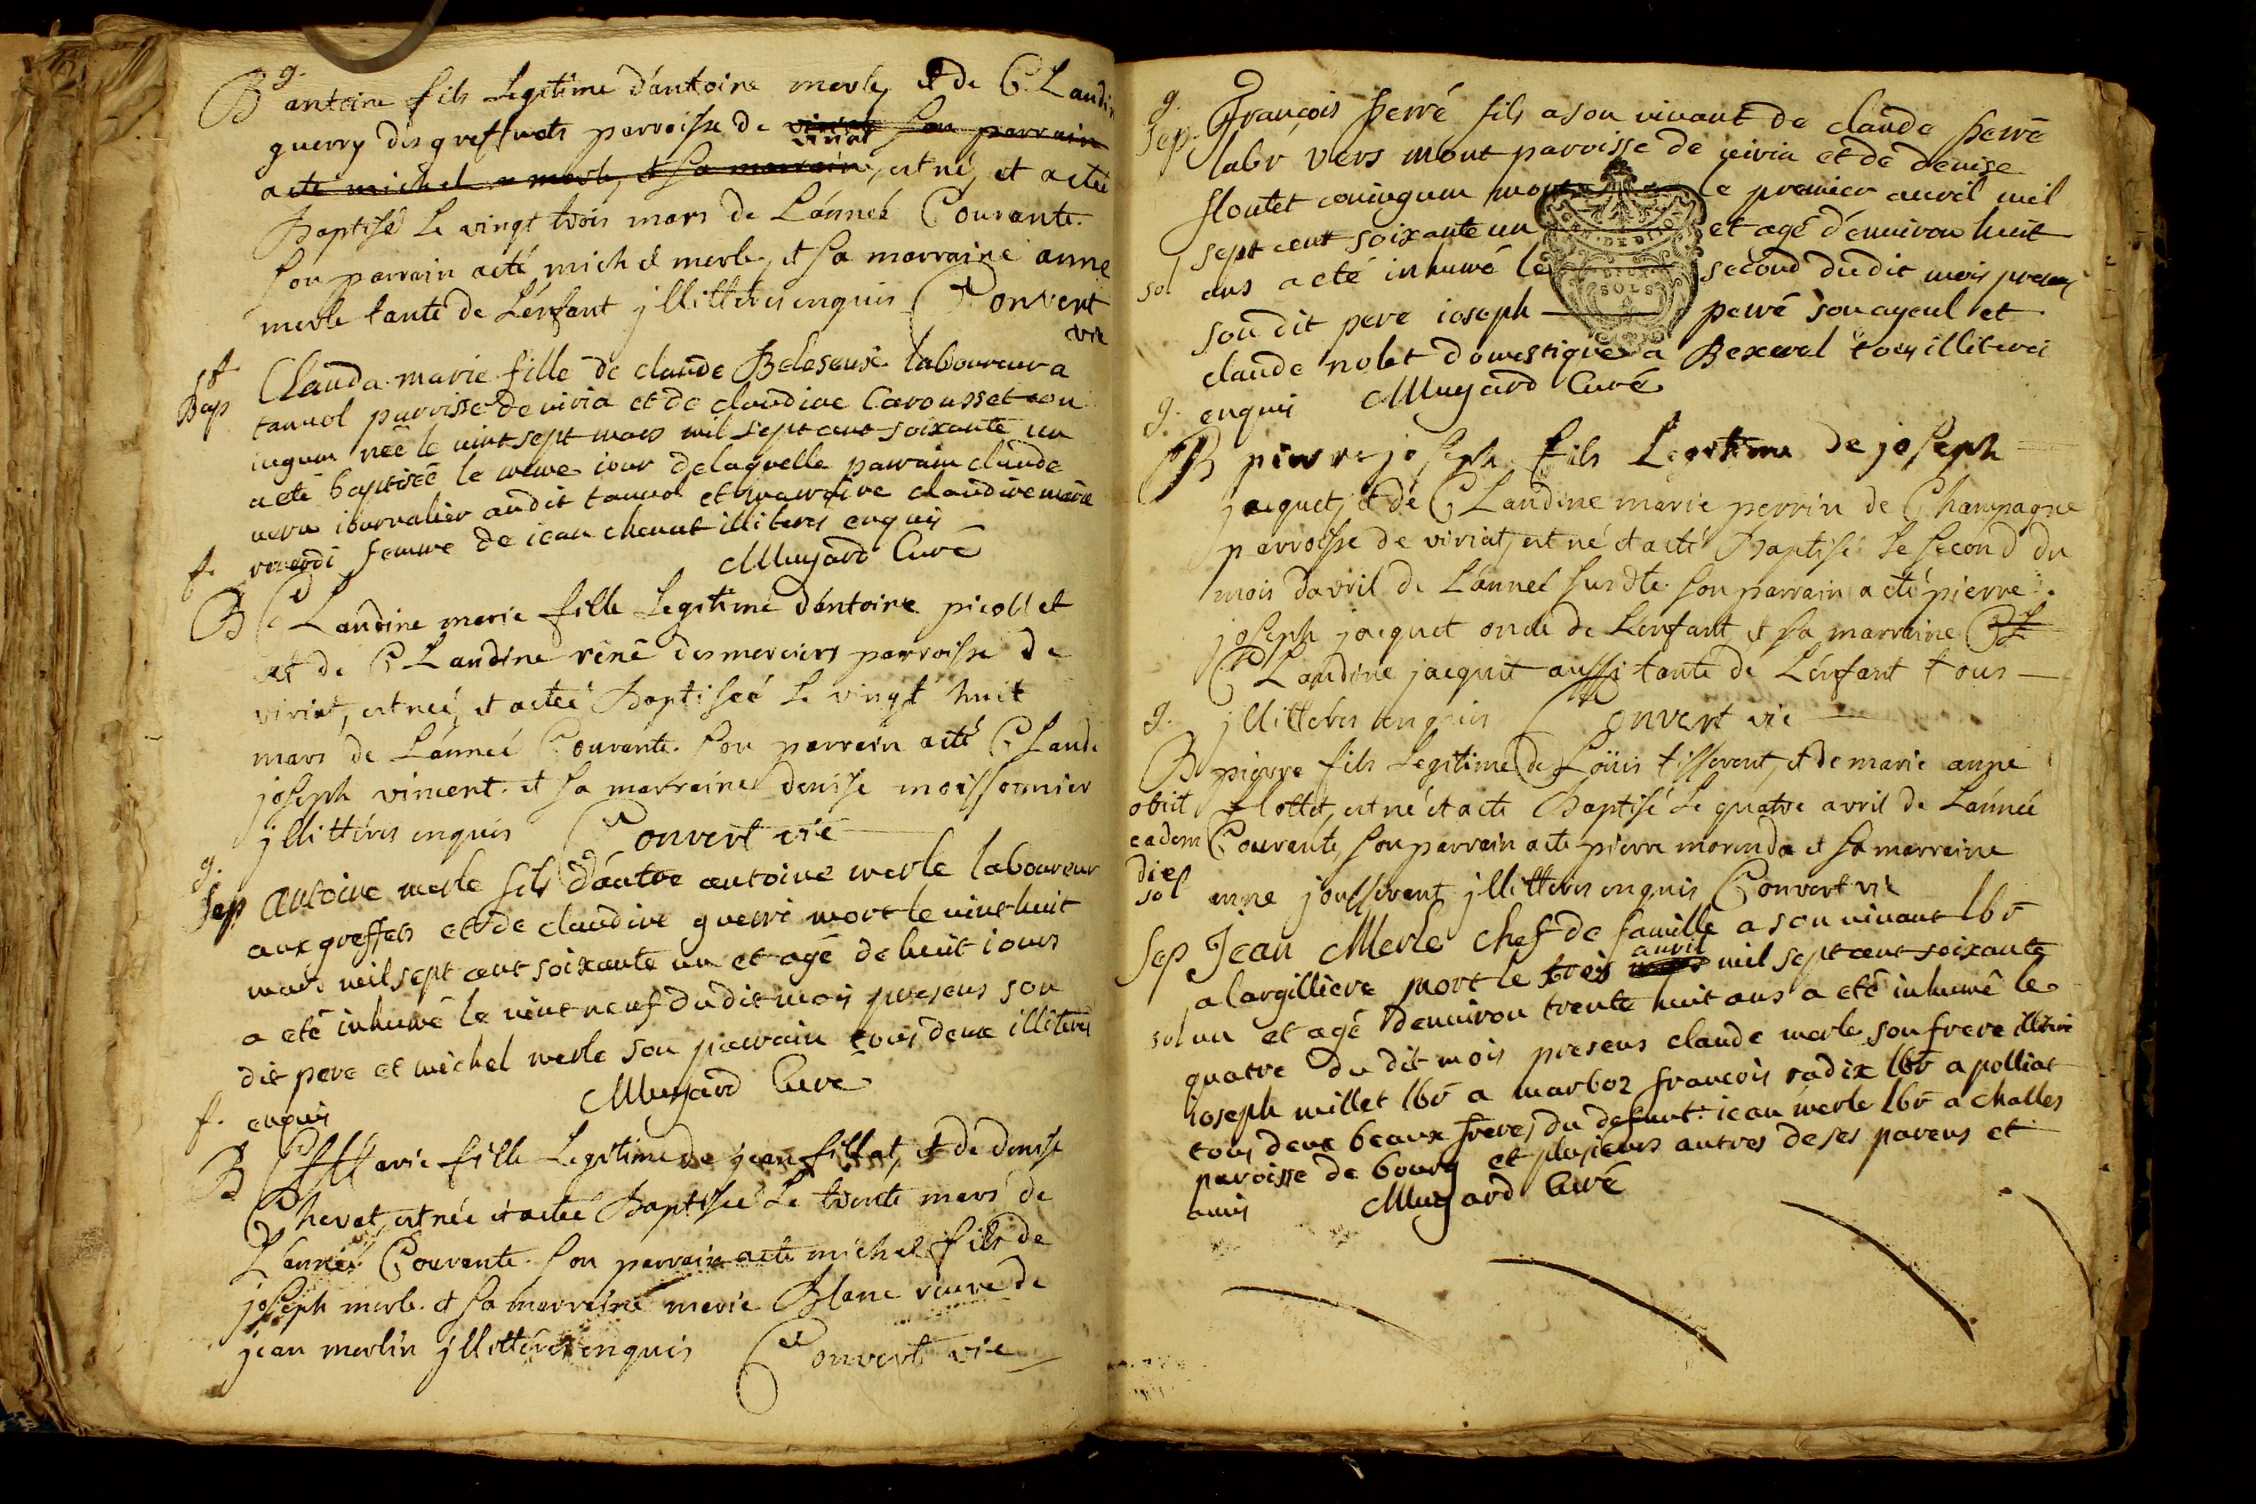 g.
B antoine fils Legitime d'antoine merle, et de CLaudin
guerry des greffets parroisse de viriat son parrain
viriat
a eté michel merle, et sa marraine, est né, et a eté
Baptisé Le vingt trois mars de L'année Courante.
son parrain a eté michel merle, et sa marraine anne
merle tante de L'enfant jllitteres enquis Convert
vic
f
Bap Clauda marie fille de claude Beleseuse laboureur a
tanvol parroisse de viria et de claudine Carousset con
iugum née le vint sept mars mil sept cent soixante un
a eté baptisée le meme iour de laquelle parrain claude
iournalier audit tanvol et marraine claudine marie
femme de iean chevat illiteres enquis
Mugard Curé
f.
B CLaudine marie fille Legitime d'antoine picollet
et de CLaudine réné des merciers parroisse de
viriat, est neé, et a eteé Baptiseé Le vingt huit
mars de L'anneé Courante. son parrain a eté CLaude
joseph vincent. et sa marraine denise moissonnier
jllittéres enquis Convert vic
g.
Sep Antoine merle fils d'autre antoine merle laboureur
aux greffets et de claudine guerri mort le vint huit
mars mil sept cent soixante un et agé de huit iours
a eté inhumé le vint neuf du dit mois presens son
dit pere et michel merle son parrain tous deux illiteres
enquis Mugard Curé
f.
B Marie fille Legitime de jean fillat, et de denise
Chevat, est née et a eteé Baptisée Le trente mars de
L'anneé Courante. son parrain a eté michel fils de
joseph merle. et sa marraine marie Blanc veuve de
jean merlin jllittéres enquis Convert vic
g.
Sep. François perré fils a son vivant de claude perré
labr vers mont paroisse de viria et de denise
floutet coniugum mort le premier avril mil
sept cent soixante un et agé d'environ huit
sol ans a eté inhumé le second du dit mois presens
SOLS
son dit pere ioseph perré son ayeul et
claude nolet domestique a Bexerel tous illiteres
enquis Mugard Curé
g.
B pierre joseph fils Legitime de joseph
jacquet, et de CLaudine marie perrin de Champagne
parroisse de viriat, est né et a eté Baptisé Le second du
mois d'avril de L'anneé susdte. son parrain a eté pierre
joseph jacquet oncle de L'enfant et sa marraine
CLaudine jacquet aussi tante de L'enfant tous
jllitteres enquis Convert vic
g.
B pierre fils Legitime de Loüis tisserent, et de marie anne
obiit flottet, est né et a eté Baptisé Le quatre avril de L'anneé
eadem Courante, son parrain a eté pierre morenda et sa marraine
die
sol anne jousserent jllitteres enquis Convert vic
Sep Jean Merle chef de famille a son vivant lbr
avril
a largilliere mort le trois mars mil sept cent soixante
sol un et agé d'environ trente huit ans a eté inhumé le
quatre du dit mois presens claude merle son frere illitere
ioseph millet lbr a marboz françois radix lbr a polliat
tous deux beaux freres du defunt. iean merle lbr a challes
paroisse de bourg et plusieurs autres de ses parens et
amis Mugard Curé